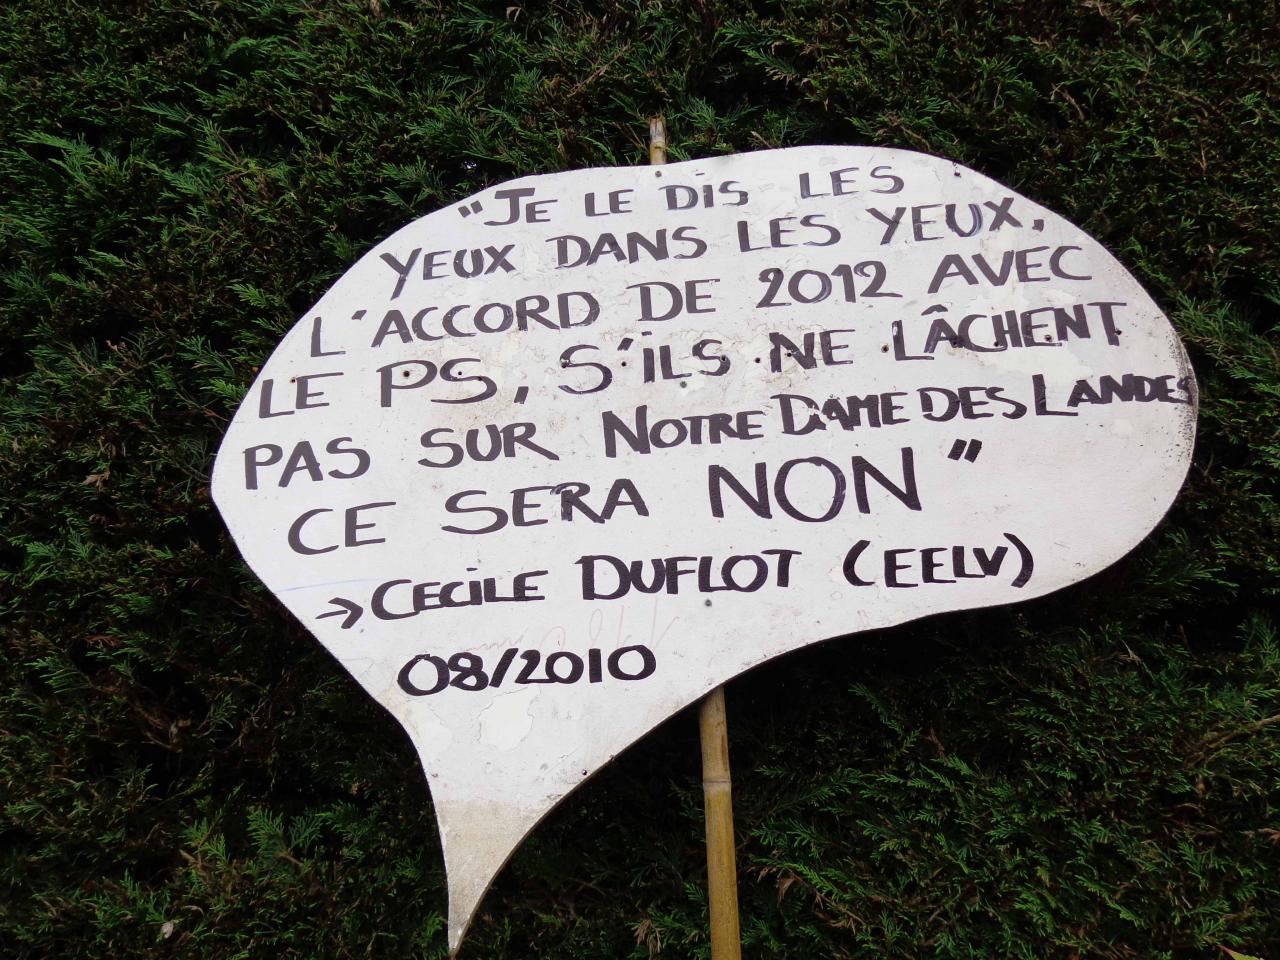 "JE LE DIS LES
YEUX DANS LES YEUX,
L'ACCORD DE 2012 AVEC
LE PS, S'ILS NE LÂCHENT
PAS SUR NOTRE DAME DES LANDES
CE SERA NON"
→ CECILE DUFLOT (EELV)
08/2010